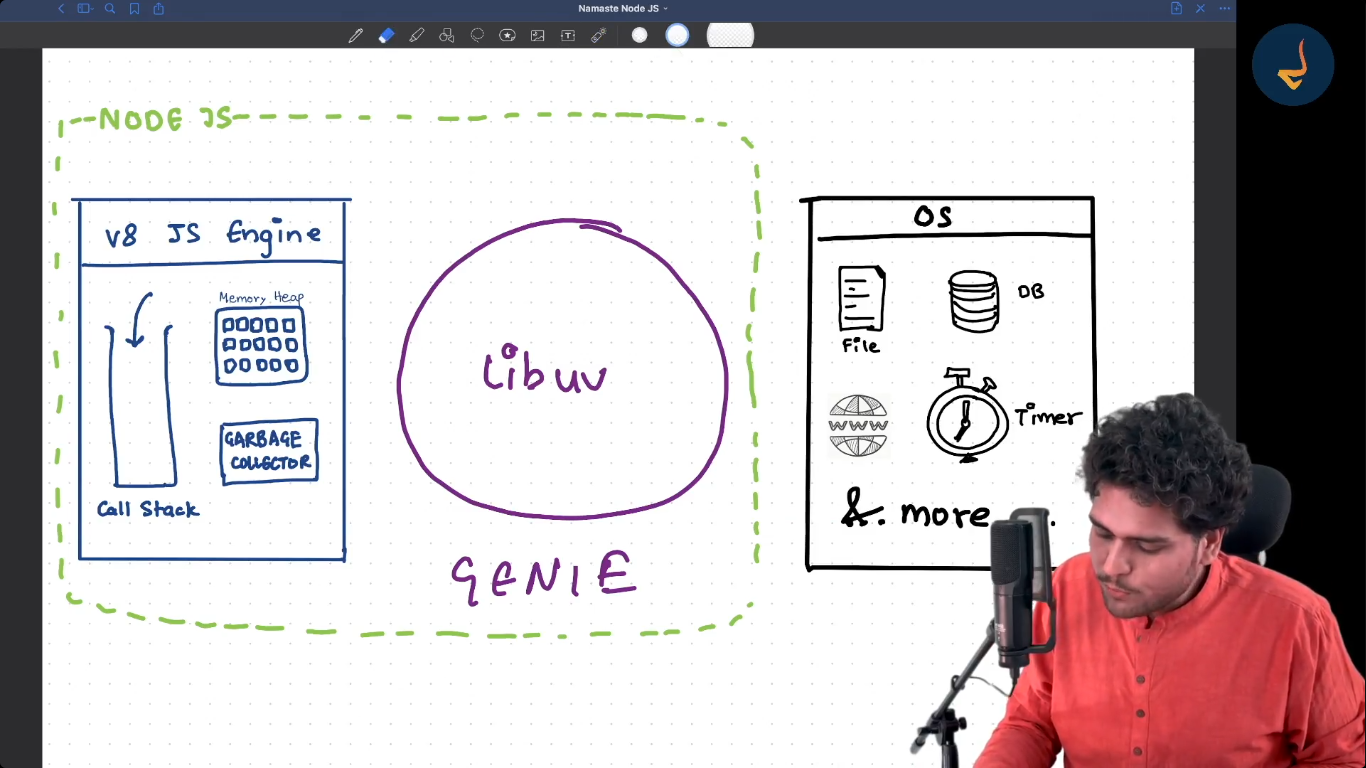 Namaste Node JS
NODE JS
V8 JS Engine
Memory Heap
GARBAGE
COLLECTOR
Call Stack
Libuv
GENIE
OS
File
DB
WWW
Timer
&. more